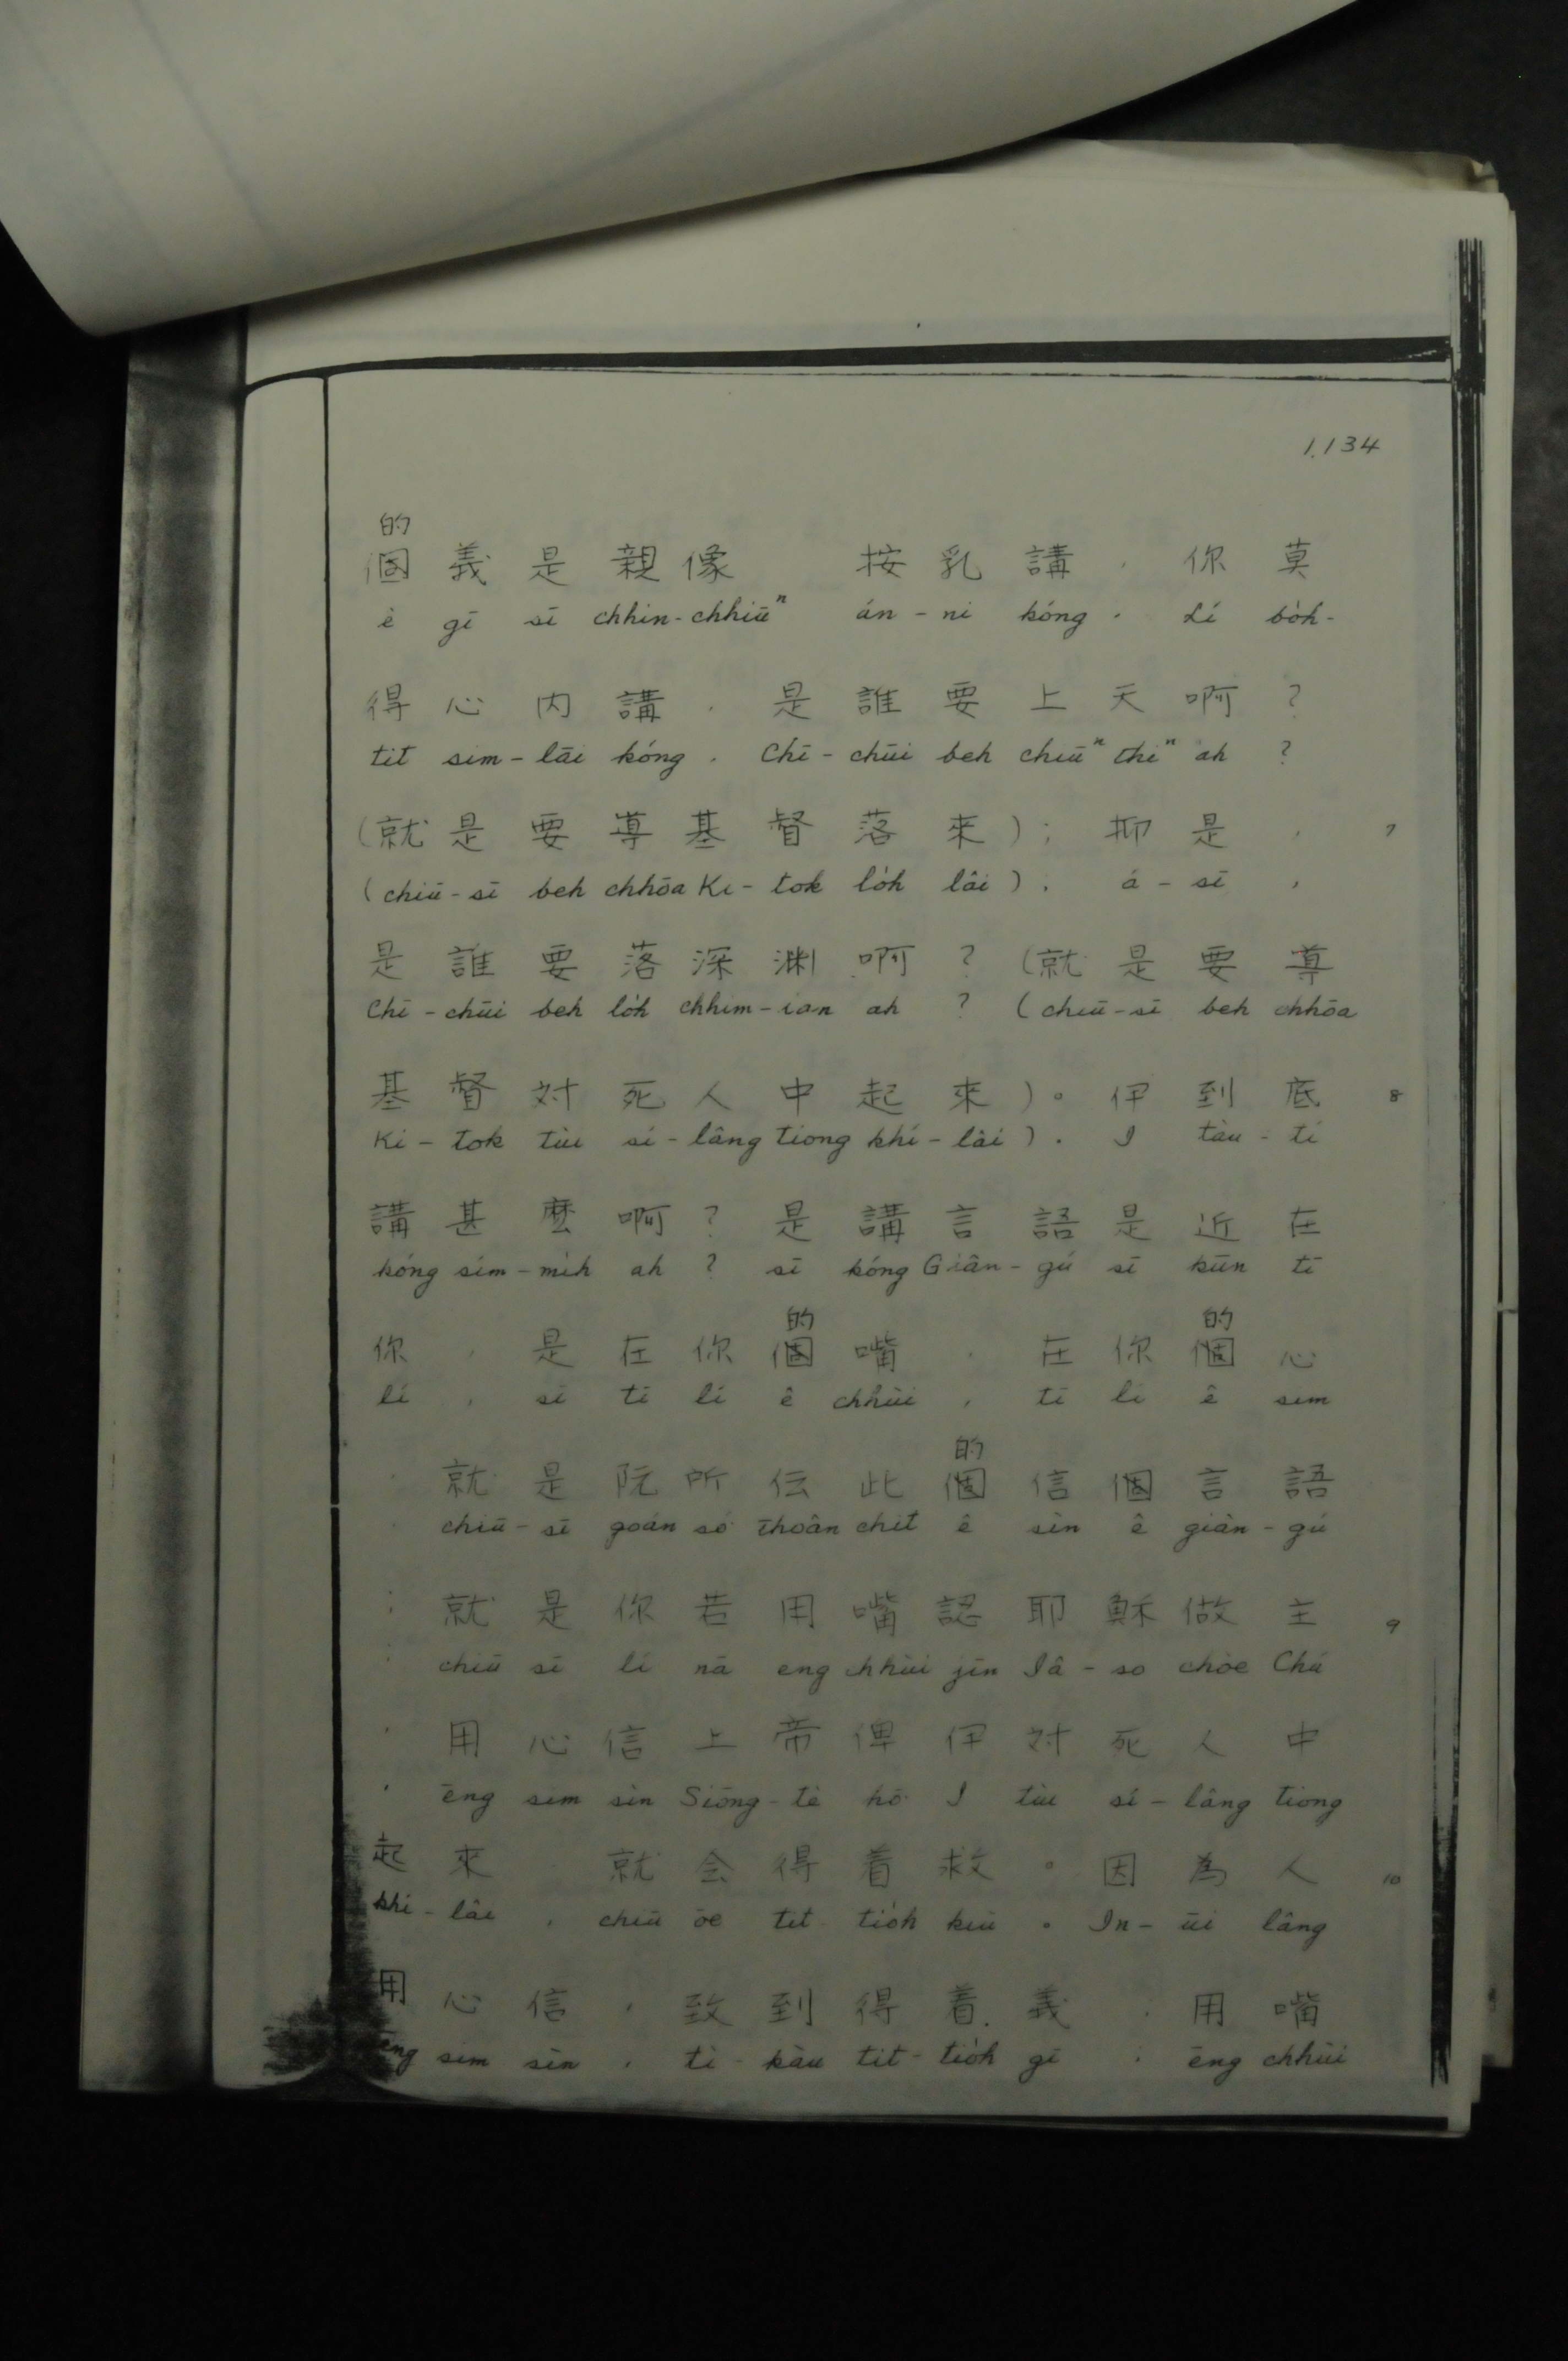 1.134
的
個 義 是 親 像 按 乳 講 . 你 莫
ê gī sī chhin-chhiūⁿ án-ni kóng . Lí bo̍h-
得 心 内 講 . 是 誰 要 上 天 啊 ?
tit sim-lāi kóng . Chī-chūi beh chiūⁿ thiⁿ ah ?
(就 是 要 導 基 督 落 來 ) ; 抑 是 , 7
(chiū-sī beh chhōa Ki-tok lo̍h lâi ) ; á-sī ,
是 誰 要 落 深 渊 啊 ? (就 是 要 導
Chī-chūi beh lo̍h chhim-ian ah ? (chiū-sī beh chhōa
基 督 対 死 人 中 起 來 ) 。 伊 到 底 8
Ki-tok tùi sí-lâng tiong khí-lâi ) . I tàu-tí
講 甚 麼 啊 ? 是 講 言 語 是 近 在
kóng sím-mi̍h ah ? sī kóng Giân-gú sī kūn tī
的 的
你 , 是 在 你 個 嘴 , 在 你 個 心
lí , sī tī lí ê chhùi , tī lí ê sim
的
, 就 是 阮 所 伝 此 個 信 個 言 語
chiū-sī goán só͘ thoân chit ê sìn ê giân-gú
; 就 是 你 若 用 嘴 認 耶 穌 做 主 9
; chiū sī lí nā eng chhùi jīn Iâ-so chòe Chú
, 用 心 信 上 帝 俾 伊 対 死 人 中
, ēng sim sìn Siōng-tè hō͘ I tùi sí-lâng tiong
起 來 就 会 得 着 救 。 因 為 人 10
khí-lâi , chiū ōe tit-tio̍h kiù 。 In-ūi lâng
用 心 信 , 致 到 得 着 義 ; 用 嘴
ēng sim sìn , tì-kàu tit-tio̍h gī ; ēng chhùi